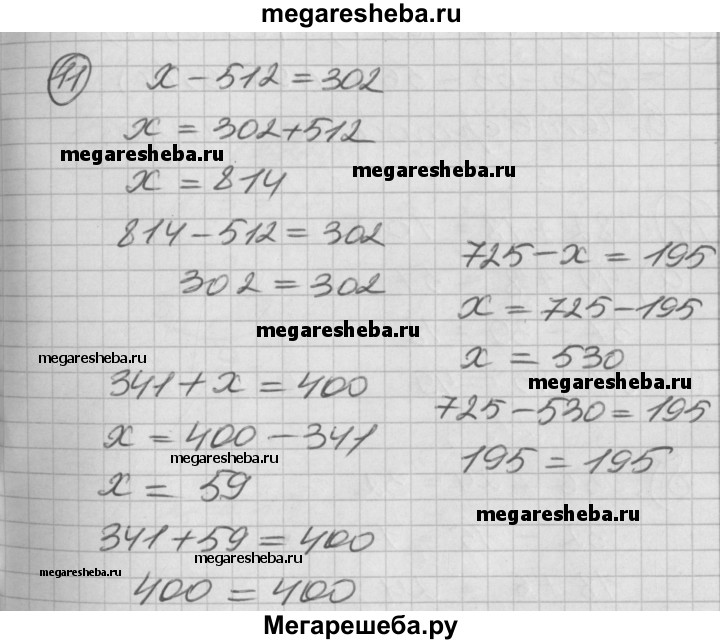 megaresheba.ru
11
x - 512 = 302
x = 302 + 512
megaresheba.ru
megaresheba.ru
x = 814
814 - 512 = 302
302 = 302
megaresheba.ru
megaresheba.ru
341 + x = 400
x = 400 - 341
megaresheba.ru
x = 59
341 + 59 = 400
megaresheba.ru
megaresheba.ru
400 = 400
725 - x = 195
x = 725 - 195
x = 530
megaresheba.ru
725 - 530 = 195
195 = 195
megaresheba.ru
Мегарешеба.ру